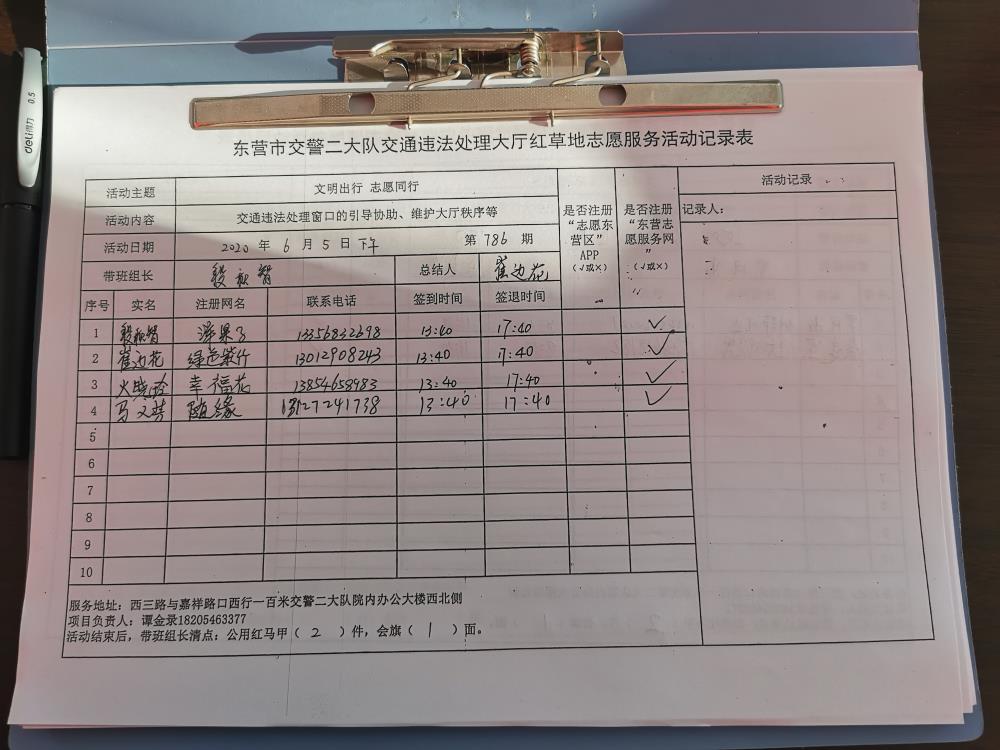 deli得力 0.5
东营市交警二大队交通违法处理大厅红草地志愿服务活动记录表
活动主题 文明出行 志愿同行
活动内容 交通违法处理窗口的引导协助、维护大厅秩序等
活动日期 2020 年 6 月 5 日 下午 第 786 期
带班组长 总结人 崔边花
是否注册“志愿东营区”APP(√或×)
是否注册“东营志愿服务网”(√或×)
活动记录
记录人：
序号 实名 注册网名 联系电话 签到时间 签退时间
1 泽果子 13356832698 13:40 17:40 √
2 崔边花 绿色紫竹 13012908243 13:40 17:40 √
3 火晓玲 幸福花 13854659983 13:40 17:40 √
4 随缘 13127241738 13:40 17:40 √
5
6
7
8
9
10
服务地址：西三路与嘉祥路口西行一百米交警二大队院内办公大楼西北侧
项目负责人：谭金录18205463377
活动结束后，带班组长清点：公用红马甲（ 2 ）件，会旗（ 1 ）面。